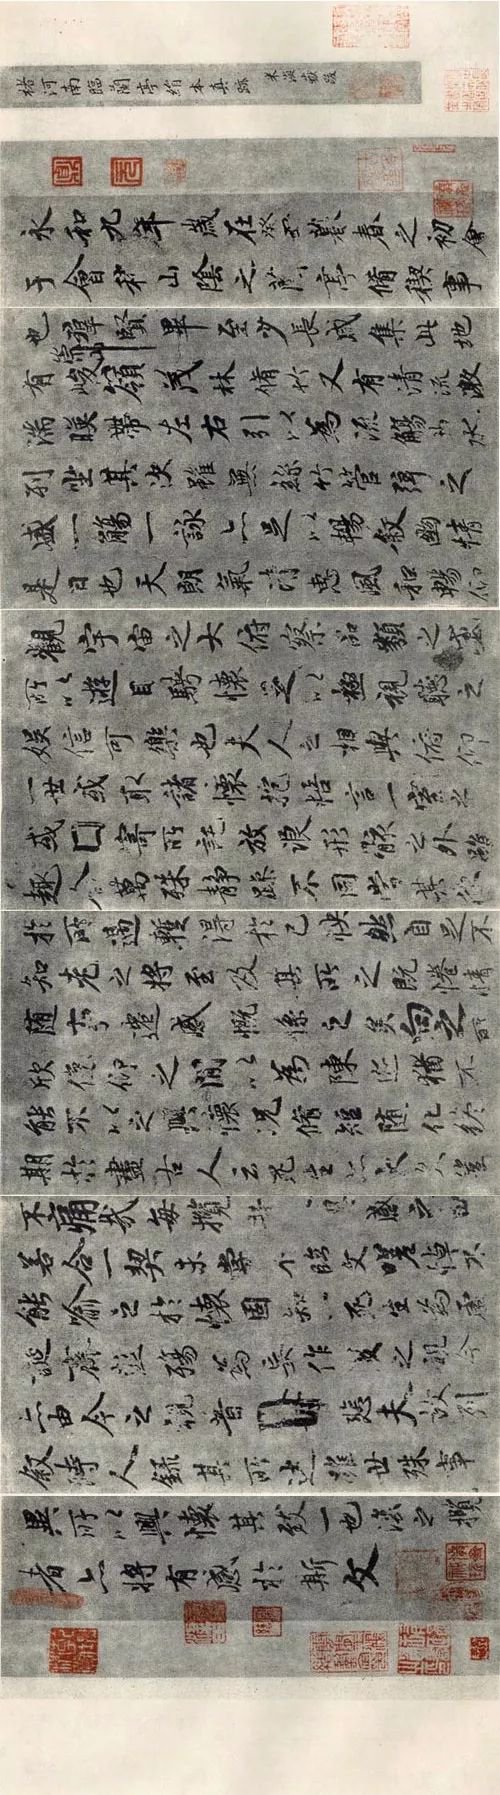 褚河南臨蘭亭絹本真跡 米海嶽跋
永和九年歲在癸丑暮春之初會
于會稽山陰之蘭亭脩稧事
也群賢畢至少長咸集此地
有崇山峻領茂林脩竹又有清流激
湍暎帶左右引以為流觴曲水
列坐其次雖無絲竹管弦之
盛一觴一詠亦足以暢叙幽情
是日也天朗氣清惠風和暢仰
觀宇宙之大俯察品類之盛
所以遊目騁懷足以極視聽之
娛信可樂也夫人之相與俯仰
一世或取諸懷抱悟言一室之內
或因寄所託放浪形骸之外雖
趣舍萬殊靜躁不同當其欣
於所遇暫得於己怏然自足不
知老之將至及其所之既惓情
随事遷感慨係之矣向之所
欣俛仰之閒以為陳迹猶不
能不以之興懷況脩短随化終
期於盡古人云死生亦大矣豈
不痛哉每攬昔人興感之由
若合一契未嘗不臨文嗟悼不
能喻之於懷固知一死生為虛
誕齊彭殤為妄作後之視今
亦由今之視昔悲夫故列
叙時人錄其所述雖世殊事
異所以興懷其致一也後之攬
者亦將有感於斯文